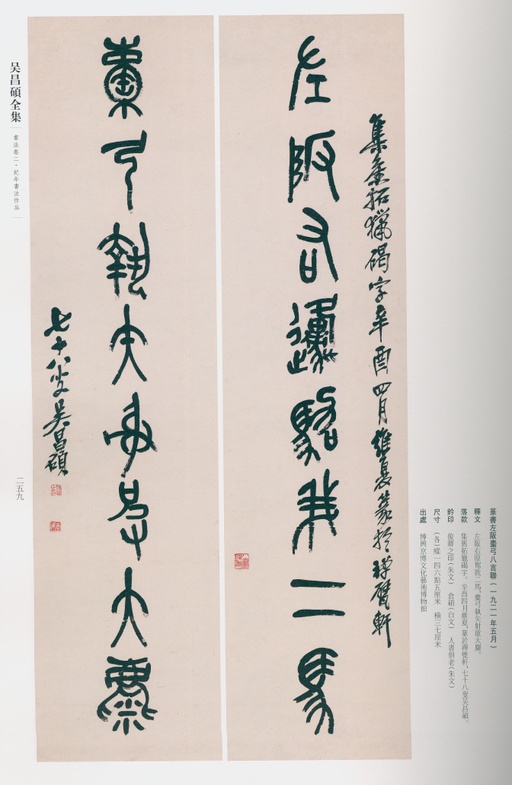 集舊拓獵碣字辛酉四月維夏篆於禪甓軒
左阪右邍駕我二馬
橐弓執矢射是大麃
七十八叟吳昌碩
吴昌碩全集
書法卷二·紀年書法作品
二五九
篆書左阪橐弓八言聯（一九二一年五月）
釋文　左阪右邍駕我二馬，橐弓執矢射
落款　集舊拓獵碣字，辛酉四月維夏，篆於禪甓軒，七十八叟吳昌碩。
鈐印　俊卿之印（朱文）　倉碩（白文）　人書俱老（朱文）
尺寸　（各）縱一四六點五厘米　橫三七厘米
出處　博興京博文化藝術博物館